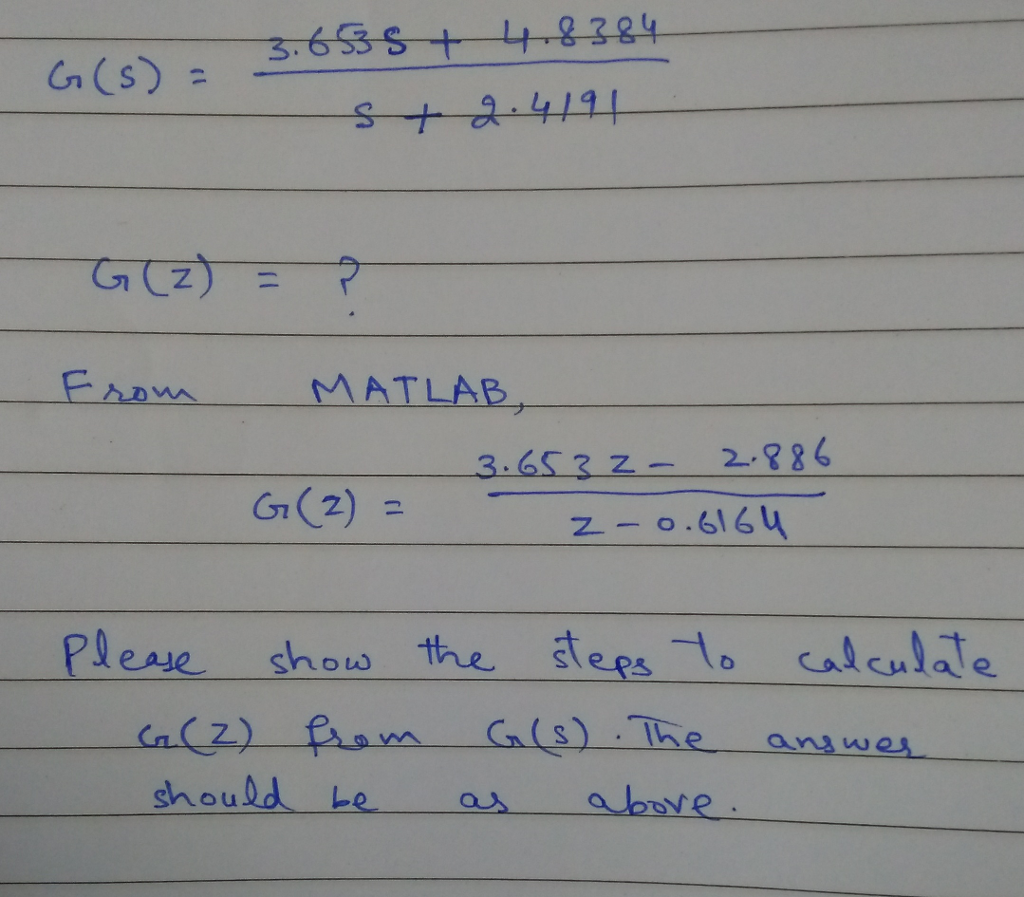 G(s) = 3.653s + 4.8384
s + 2.4191
G(z) = ?
From MATLAB,
G(z) = 3.653z - 2.886
z - 0.6164
Please show the steps to calculate
G(z) from G(s). The answer
should be as above.